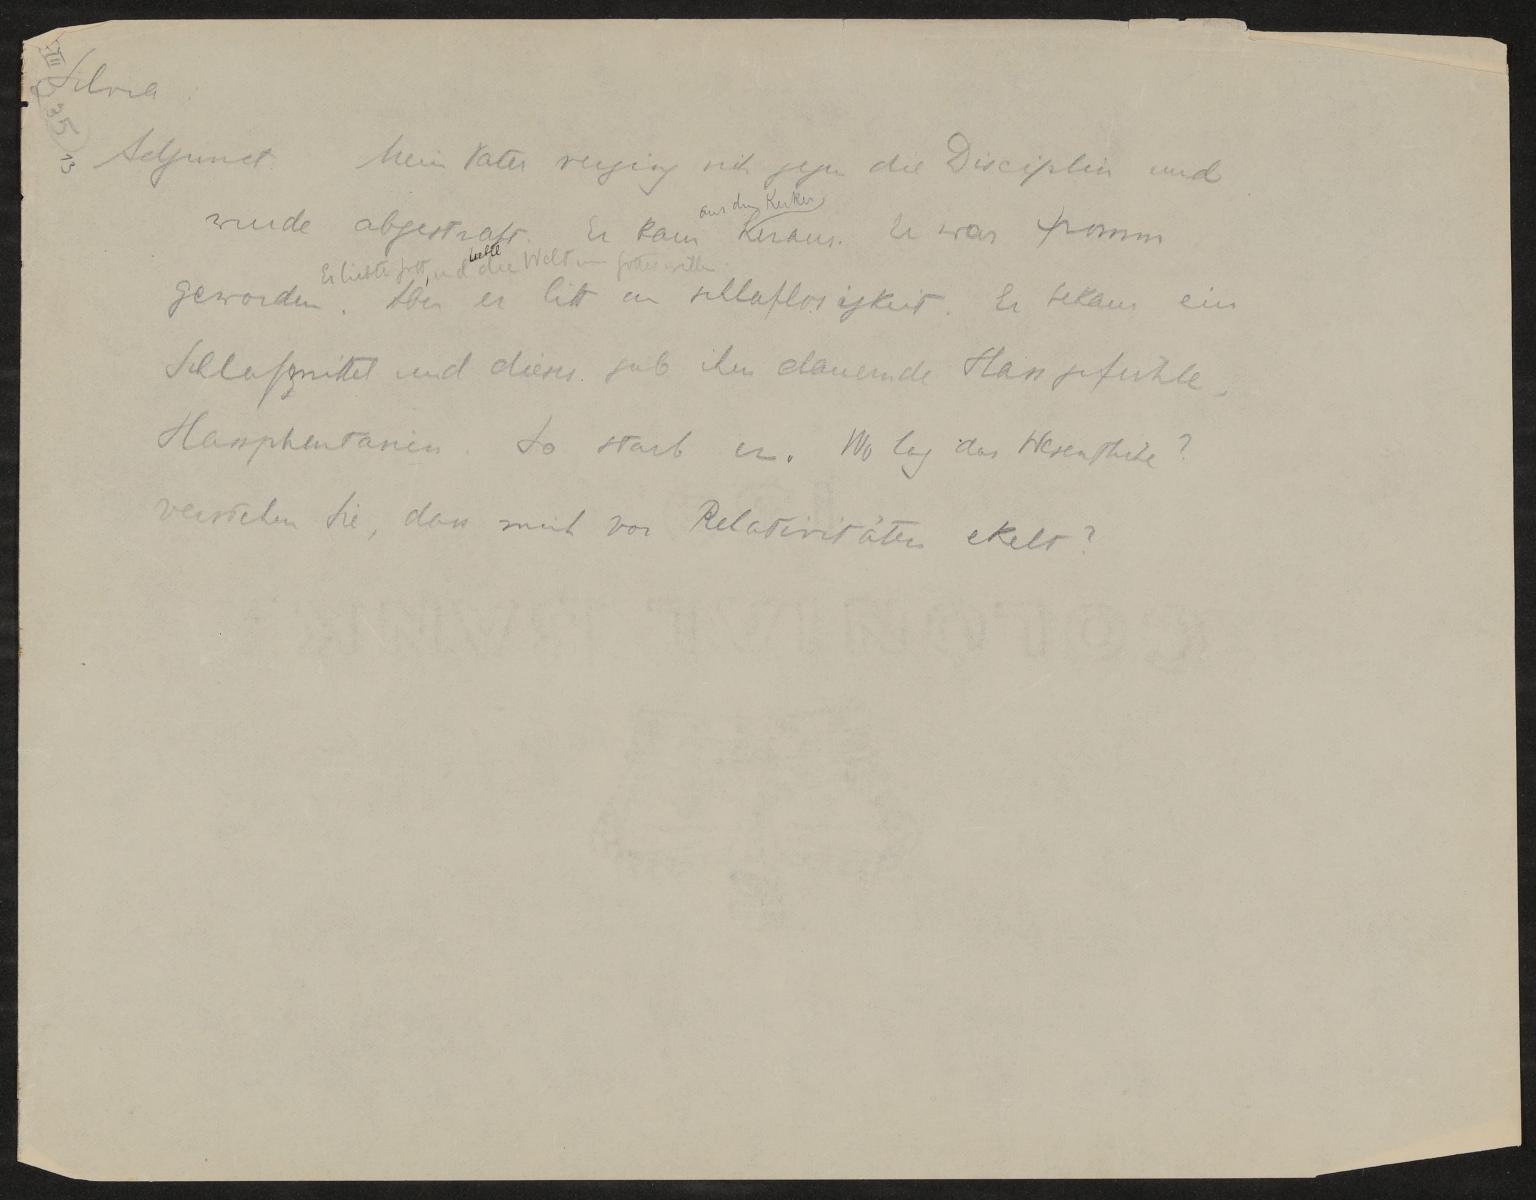 VII
35
13
Silvia
Adjunct. Mein Vater verging sich gegen die Disciplin und
aus dem Kerker
wurde abgestraft. Er kam heraus. Er war fromm
Er liebte Gott, und liebte die Welt um Gottes willen.
geworden. Aber er litt an Schlaflosigkeit. Er bekam ein
Schlafmittel und dieses gab ihm dauernde Hassgefühle,
Hassphantasien. So starb er. Wo lag das Wesentliche?
verstehen Sie, dass mich vor Relativitäten ekelt?